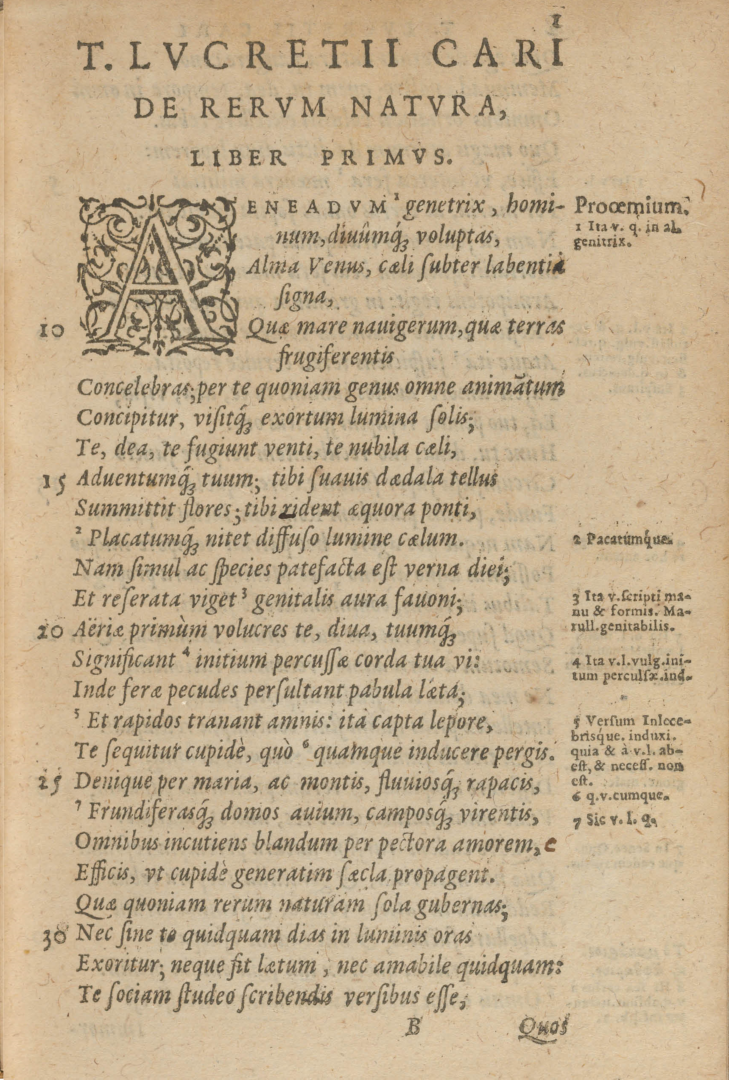 1
T. LVCRETII CARI
DE RERVM NATVRA,
LIBER PRIMVS.
AENEADVM ¹ genetrix, homi-
num, diuûmq́ꝫ voluptas,
Alma Venus, cæli ſubter labentia
ſigna,
10 Quæ mare nauigerum, quæ terras
frugiferentis
Concelebras; per te quoniam genus omne animãtum
Concipitur, viſitq́ꝫ exortum lumina ſolis;
Te, dea, te fugiunt venti, te nubila cæli,
15 Aduentumq́ꝫ tuum; tibi ſuauis dædala tellus
Summittit flores; tibi rident æquora ponti,
² Placatumq́ꝫ nitet diffuſo lumine cælum.
Nam ſimul ac ſpecies patefacta eſt verna diei;
Et reſerata viget ³ genitalis aura fauoni;
20 Aëriæ primùm volucres te, diua, tuumq́ꝫ
Significant ⁴ initium percuſſæ corda tua vi:
Inde feræ pecudes perſultant pabula læta;
⁵ Et rapidos tranant amnis: ita capta lepore,
Te ſequitur cupidè, quò ⁶ quamque inducere pergis.
25 Denique per maria, ac montis, fluuiosq́ꝫ rapacis,
⁷ Frundiferasq́ꝫ domos auium, camposq́ꝫ virentis,
Omnibus incutiens blandum per pectora amorem, e
Efficis, vt cupidè generatim ſæcla propagent.
Quæ quoniam rerum naturam ſola gubernas;
30 Nec ſine te quidquam dias in luminis oras
Exoritur; neque fit lætum, nec amabile quidquam:
Te ſociam ſtudeo ſcribendis verſibus eſſe,
B Quos
Proœmium.
1 Ita v. q. in al.
genitrix.
2 Pacatúmque.
3 Ita v. ſcripti ma-
nu & formis. Ma-
rull. genitabilis.
4 Ita v. l. vulg. ini-
tum perculſæ. ind.
5 Verſum Inloce-
brisque. induxi.
quia & à v. l. ab-
eſt, & neceſſ. non
eſt.
6 q. v. cumque.
7 Sic v. l. q.